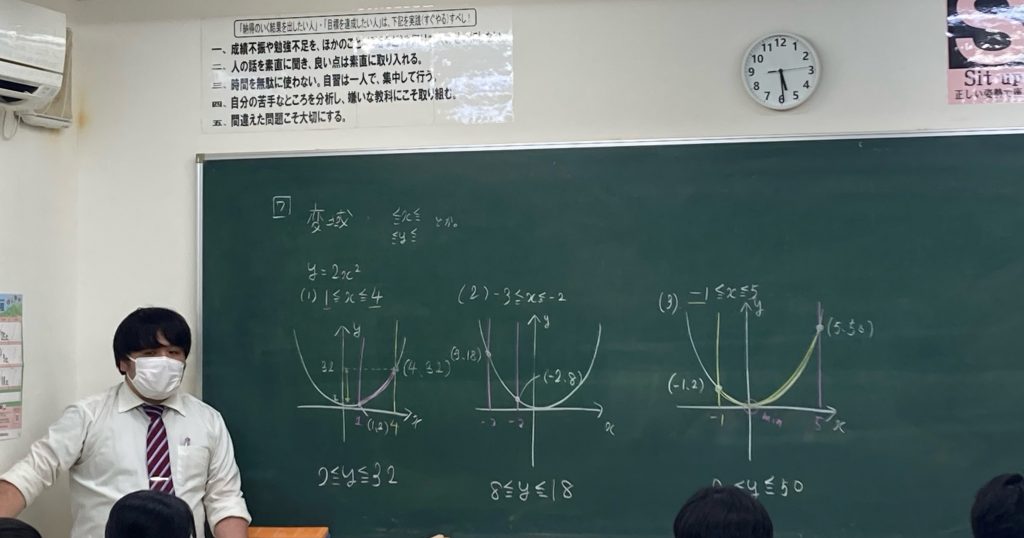 「納得のいく結果を出したい人」・「目標を達成したい人」は、下記を実践(すぐやる)すべし!
一、成績不振や勉強不足を、ほかのこ
二、人の話を素直に聞き、良い点は素直に取り入れる。
三、時間を無駄に使わない。自習は一人で、集中して行う。
四、自分の苦手なところを分析し、嫌いな教科にこそ取り組む。
五、間違えた問題こそ大切にする。
12 1 2 3 4 5 6 7 8 9 10 11
S
Sit up
正しい姿勢で座
7 変域
≦x≦
≦y≦
とか。
y=2x²
(1) 1≦x≦4
y
32
(4,32)
1 (1,2) 4 x
2≦y≦32
(2) -3≦x≦-2
y
18)
(-2,8)
-3 -2 x
8≦y≦18
(3) -1≦x≦5
y
(5,50)
(-1,2)
-1 min 5 x
≦y≦50